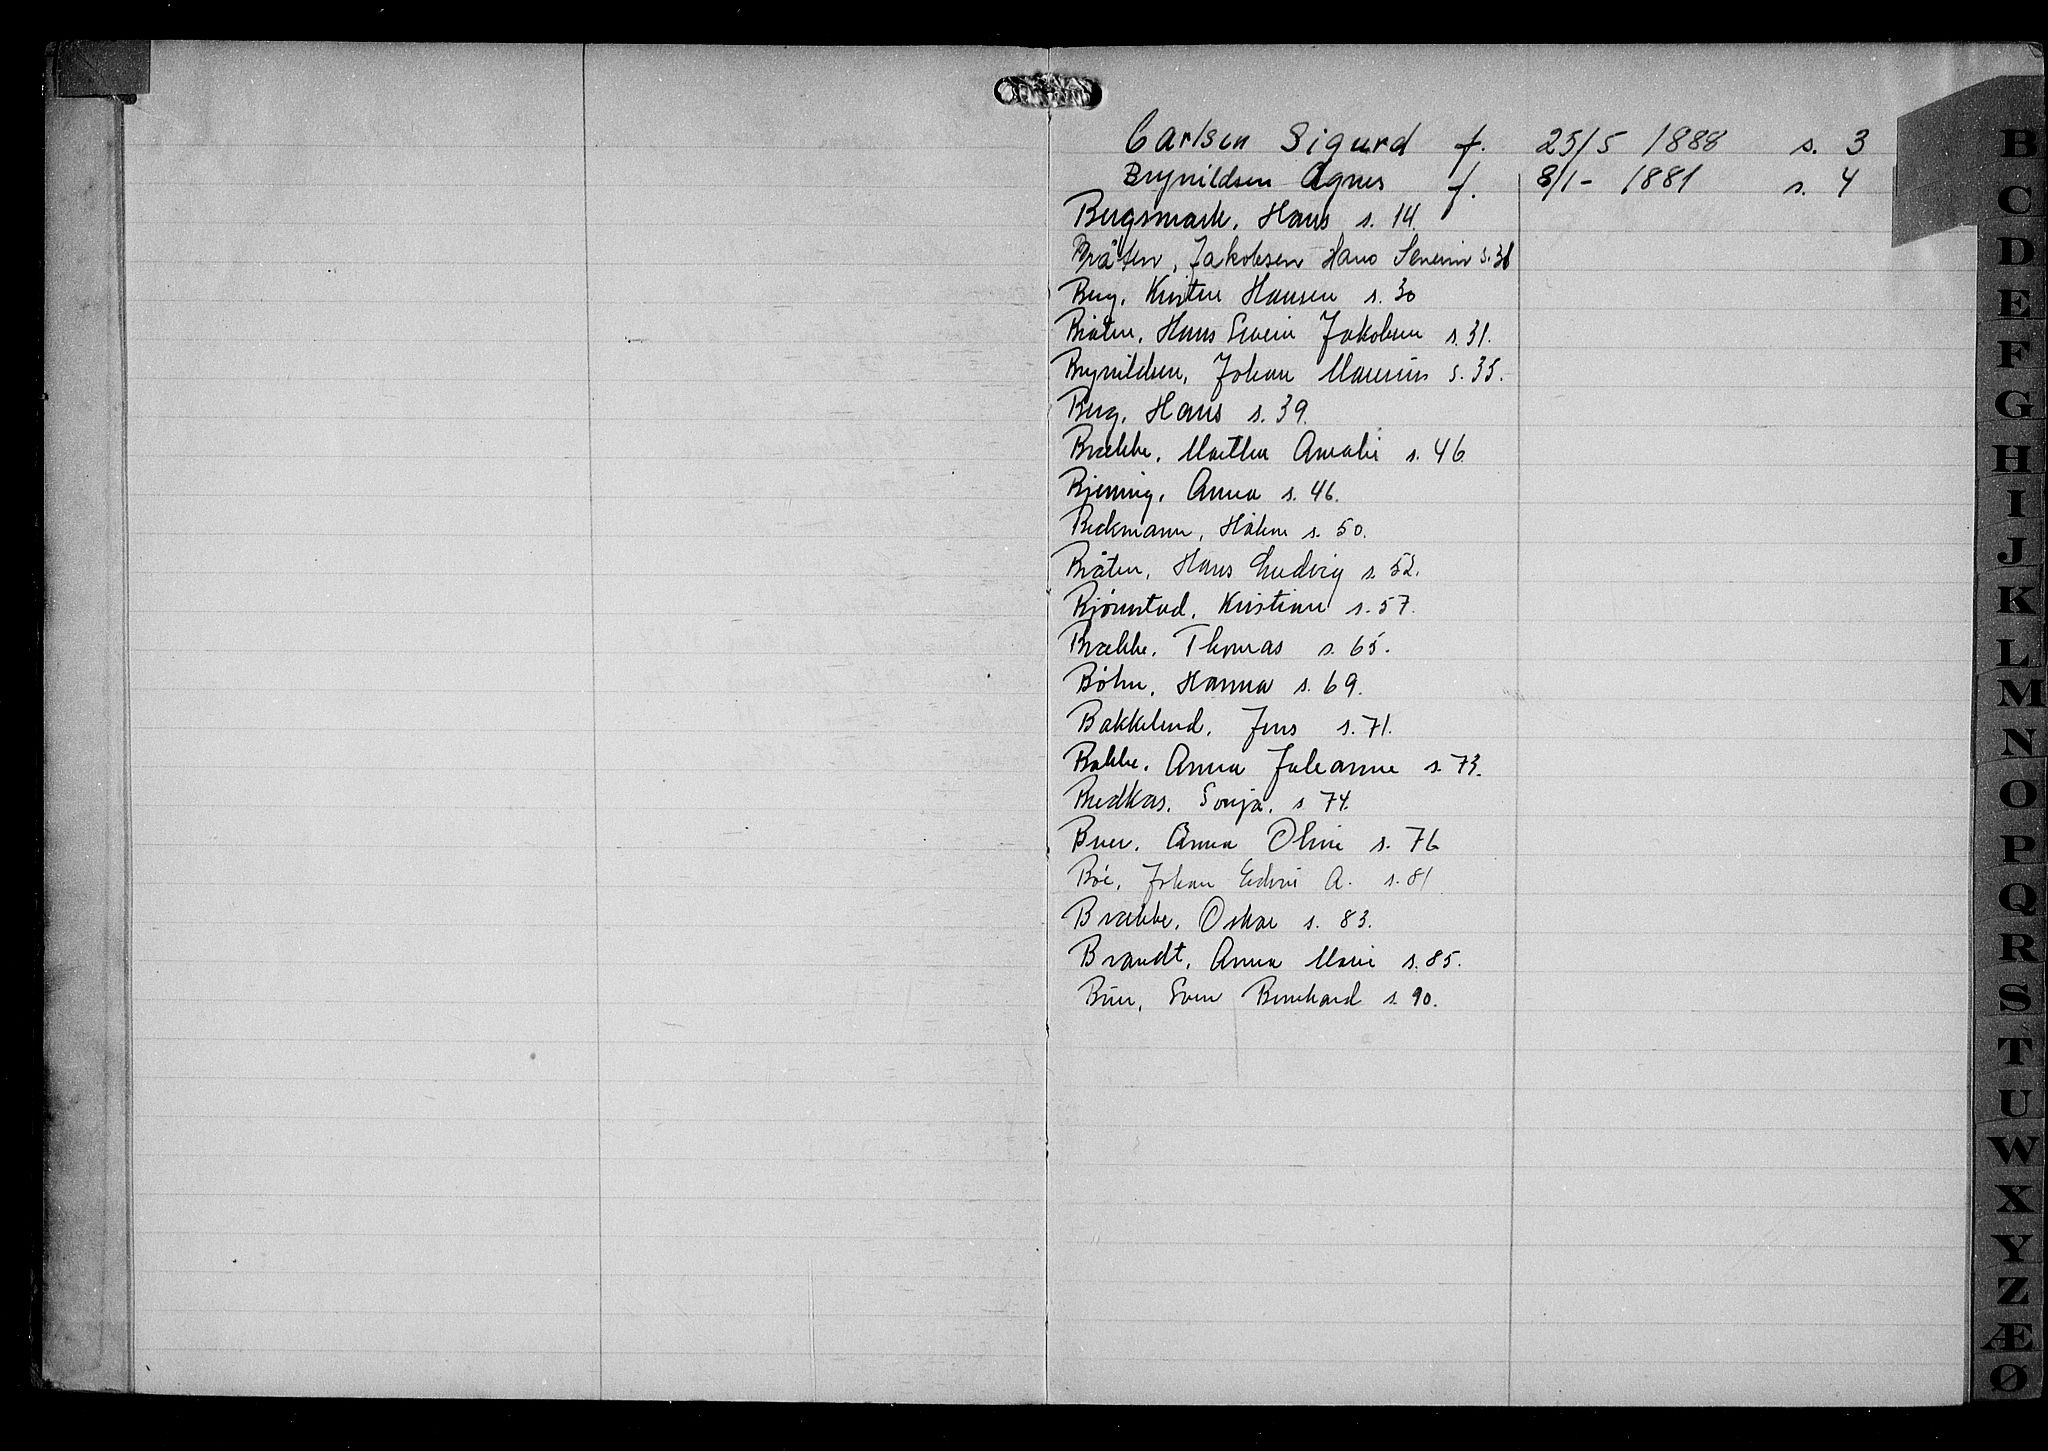 Carlsen Sigurd f. 25/5 1888 s. 3
Brynildsen Agnes f. 8/1- 1881 s. 4
Bergsmark, Hans s. 14.
Bråten, Jakobsen Hans Severin s.
Berg, Kirsten Hansen s. 30
Bråten, Hans Severin Jakobsen s. 31.
Brynildsen, Johan Maurius s. 35.
Berg, Hans s. 39.
Brække, Marthea Amalie s. 46
Bjenning, Anna s. 46.
Beckmann, Håkon s. 50.
Bråten, Hans Ludvig s. 52.
Bjørnstad, Kristian s. 57.
Brække, Thomas s. 65.
Bøhn, Hanna s. 69.
Bakkelund, Jens s. 71.
Bakke, Anna Julianne s. 73.
Sonja, s 74.
Buer, Anna Oline s. 76
Bøe, Johan Edvin A. s. 81
Brække, Oskar s. 83.
Brandt, Anna Marie s. 85.
Buer, Sven Bernhard s. 90.
B
C
D
E
F
G
H
I
J
K
L
M
N
O
P
Q
R
S
T
U
W
X
Y
Z
Æ
Ø